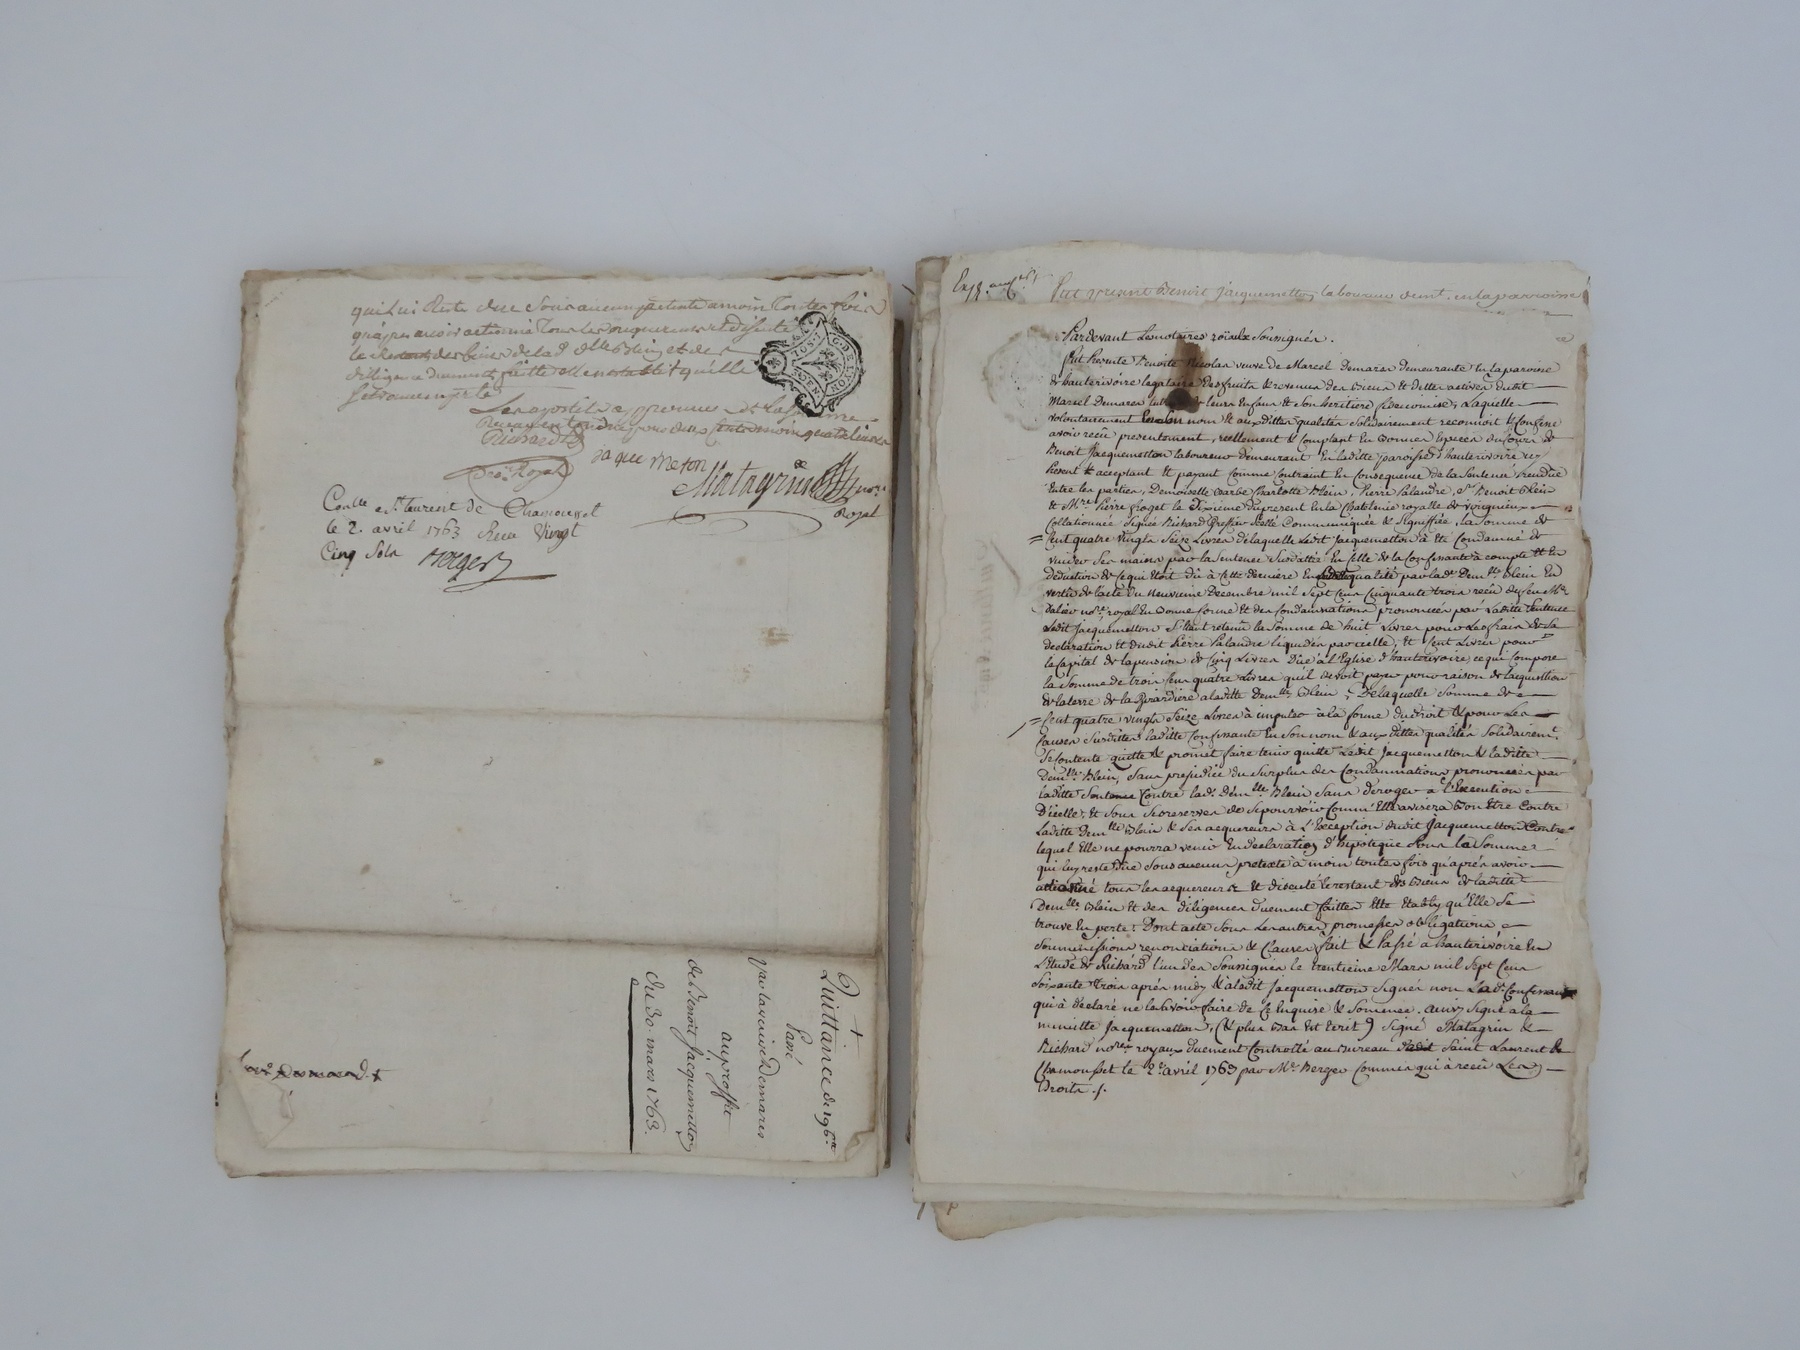 qui Lui Reste due Sous aucun pretexte amoin Toutes fois
qu'apres avoir actionné Tous les acquereurs et discuté
le Restant des biens de lad. dlle Blein et des
diligence duement faitte Elle établit qu'elle
se trouve en perte
Les apostiles approuvés
Richard
jaquemeton
Matagrin nore.
Royal
Nore. Royal
Conlle a St. laurent de Chamousset
le 2. avril 1763 Recu Vingt
Cinq Sols Berger
G. DE LYON
Quittance de 196 lt
Passé
Par la veuve Demares
au proffit
de Benoit Jacquemetton
du 30. mars 1763.
Exp.
fut present Benoit Jacquemetton laboureur demt. en la parroisse
Pardevant Les notaires roïaux Soussignés.
fut Presente Benoite Nicolas veuve de Marcel Demares demeurante En la paroisse
d'hauterivoire legataire des fruits & revenus des biens et dettes actives dudit
Marcel Demares leurs Enfans & Son heritiere fideicomise, Laquelle
volontairement En son nom & aux dittes qualités Solidairement reconnoit & Confesse
avoir receu presentement, reellement & Comptant En bonnes Especes du Cours de
Benoit Jacquemetton laboureur demeurant En laditte paroisse d'hauterivoire icy
Present & acceptant & payant Comme Contraint En Consequence de la Sentence rendüe
Entre les parties, Demoiselle Barbe Charlotte Blein, Pierre Palandre, Sr. Benoit Blein
& Mre. Pierre froget le dixieme du present En la Chatelenie royalle de virigneux
Collationnée Signée Richard Greffier Scellé Communiquée & Signiffiée, la Somme de
Cent quatre vingts Seize Livres de laquelle Ledit Jacquemetton à été Condamné de
vuider Ses mains par la Sentence Susdatée En Celle de la Confessante à compte et En
deduction de ce qui étoit dû à Cette derniere En laditte qualité par lad. Demlle. Blein En
vertu de l'acte du neuvieme Decembre mil Sept Cent Cinquante trois receu du feu Me.
Dalier nore. royal En bonne forme et des Condamnations prononcées par Laditte Sentence
Ledit Jacquemetton S'étant retenu la Somme de huit Livres pour Les frais de Sa
declaration et dudit Pierre Palandre liquidés par icelle, et Cent Livres pour
le Capital de la pension de Cinq Livres Düe à L'Eglise d'hauterivoire, ce qui Compose
la Somme de trois Cent quatre Livres qu'il devoit payer pour raison de l'acquisition
de la terre de la Girardiere a laditte Demlle. Blein; De laquelle Somme de
Cent quatre vingts Seize Livres à imputer à la forme du droit & pour Les
Causes Susdittes laditte Confessante En Son nom & aux dittes qualités Solidairemt.
Se Contente quitte & promet faire tenir quitte Ledit Jacquemetton & laditte
Demlle. Blein, Sans prejudice du Surplus des Condamnations prononcées par
laditte Sentence Contre lad. demlle. Blein Sans deroger a l'Execution
D'icelle; Et Sous Ses reserves de Se pourvoir Comm' Elle avisera bon Etre Contre
Laditte Demlle. Blein & Ses acquereurs à L'Exception dudit Jacquemetton Contre
lequel Elle ne pourra venir En declaration d'hipoteque Pour La Somme
qui luy reste Düe Sous aucun pretexte à moin toutes fois qu'aprés avoir
actionné tous les acquereurs & et discuté le restant des Biens de laditte
Demlle. Blein Et des diligences Duement faittes Elle Etably qu'Elle Se
trouve En perte: Dont acte Sous Les autres promesses obligations
Soummissions renonciations & Clauses fait & Passé a hauterivoire En
L'Etude de Richard l'un des Soussignés le trentieme Mars mil Sept Cent
Soixante Trois aprés midy & à ledit Jacquemetton Signés non Lad. Confessante
qui à declaré ne le Savoir faire de Ce Enquise & Sommée. ainsy Signé a la
minutte Jacquemetton, (& plus bas Est Ecrit) Signé Matagrin &
Richard nores. royaux Duement Controllé au Bureau dudit Saint Laurent de
Chamousset le 2e. avril 1763 par Me. Berger Commis qui à receu Les
Droits ./.